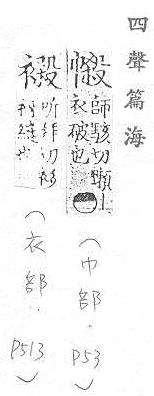 四聲篇海
師駭切
衣破也
(巾部. P53)
所拜切衫
縫也
(衣部. P513)